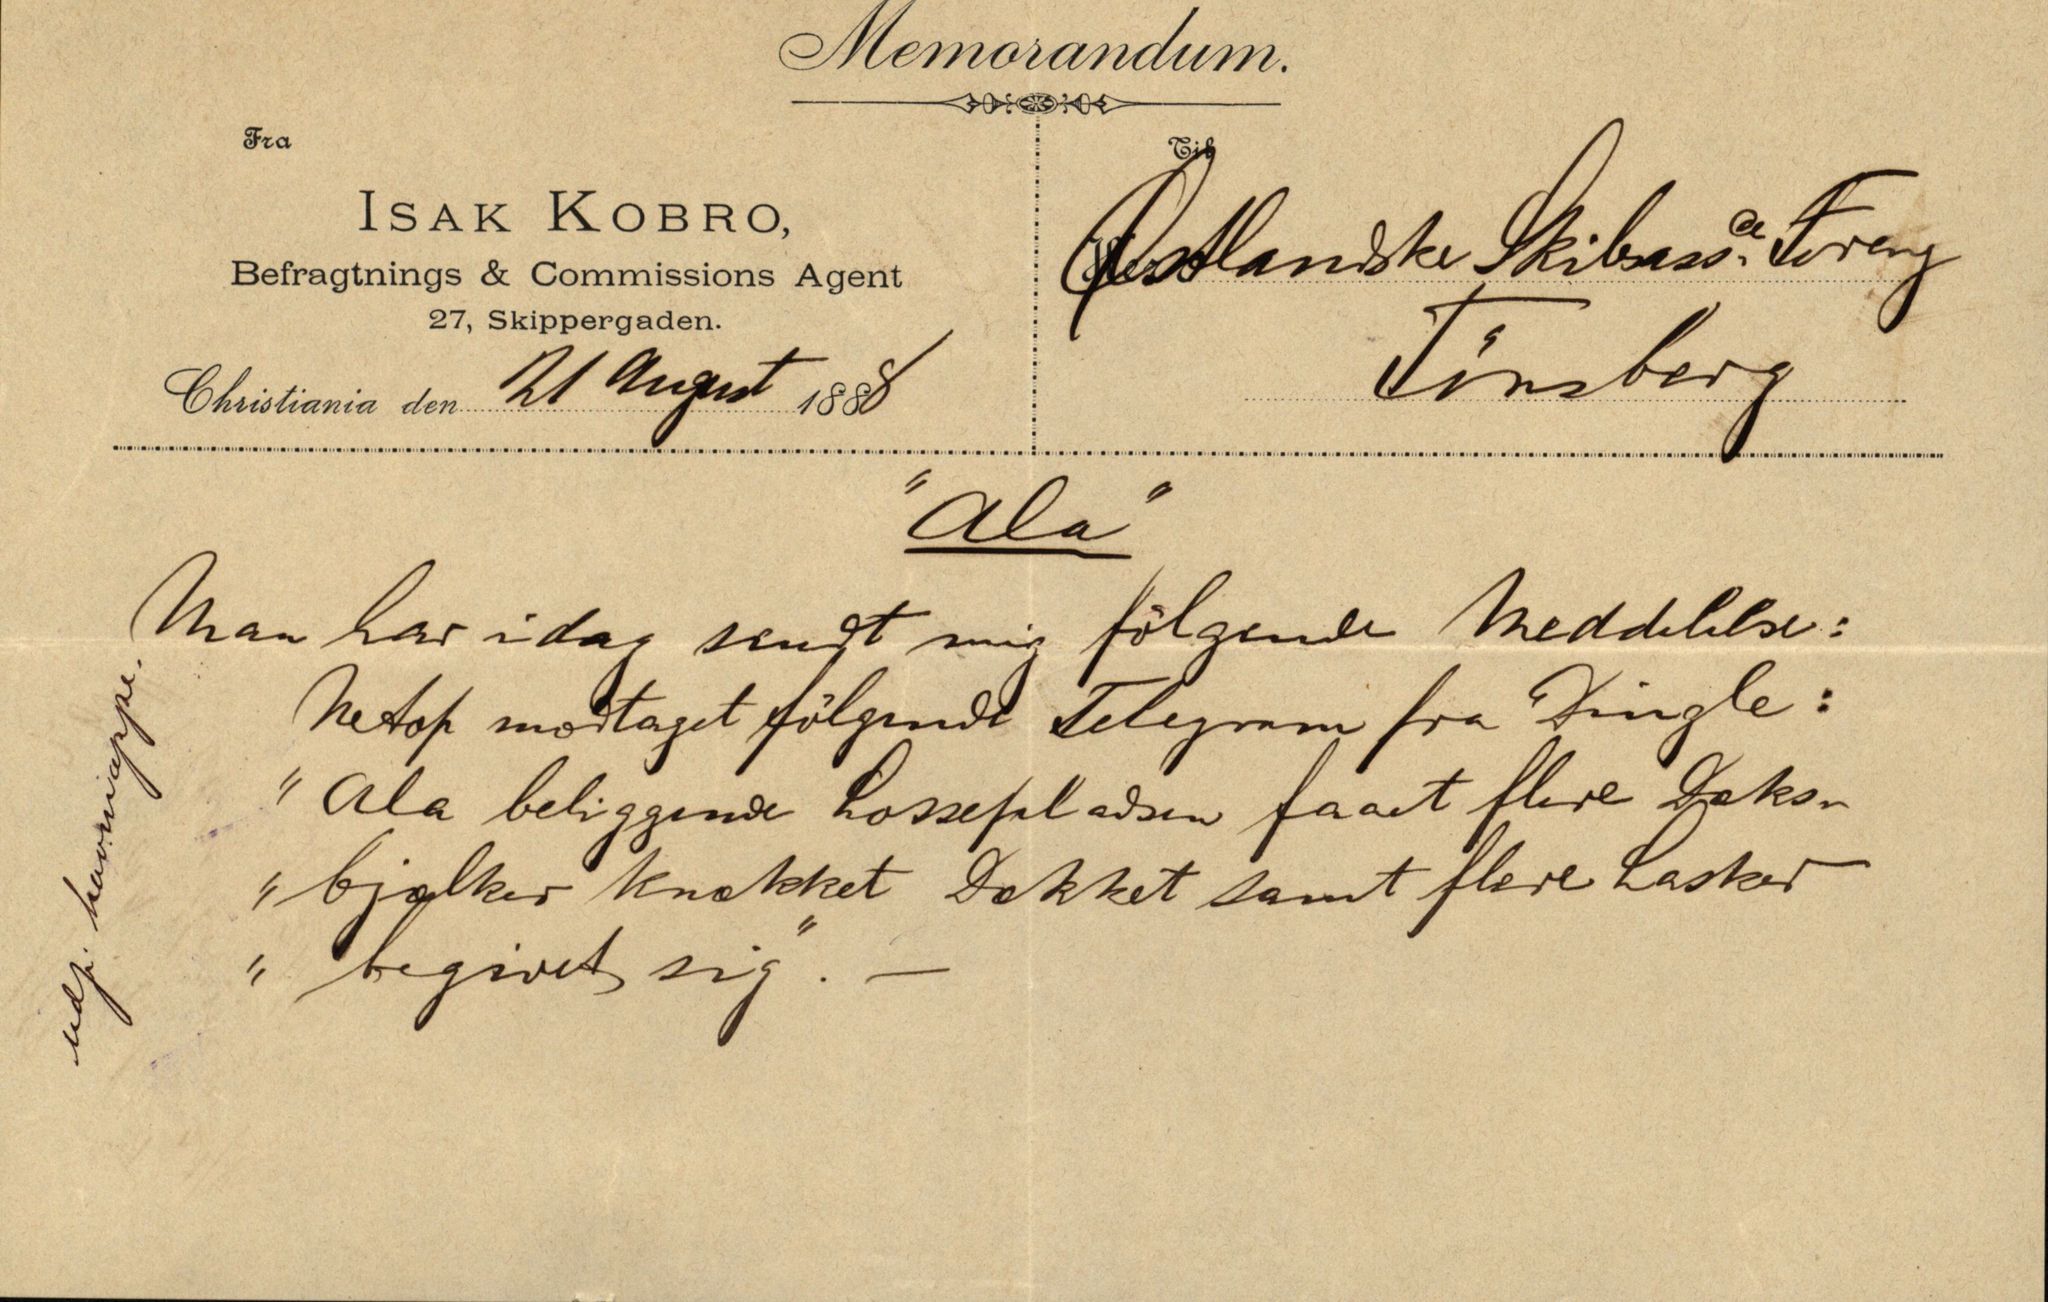 Memorandum.
Fra
Til
ISAK KOBRO,
Befragtnings & Commissions Agent
27, Skippergaden.
Christiania den 21 August 1888
Østlandske Skibsass.ce Foreng
Tönsberg
"Ala"
Man har idag sendt mig fölgende Meddelelse:
Netop modtaget fölgende Telegram fra Dingle:
" Ala beliggende Lossepladsen faaet flere Dæks-
" bjælker knækket Dækket samt flere Lasker
" begivet sig". —
udp. havnappe.